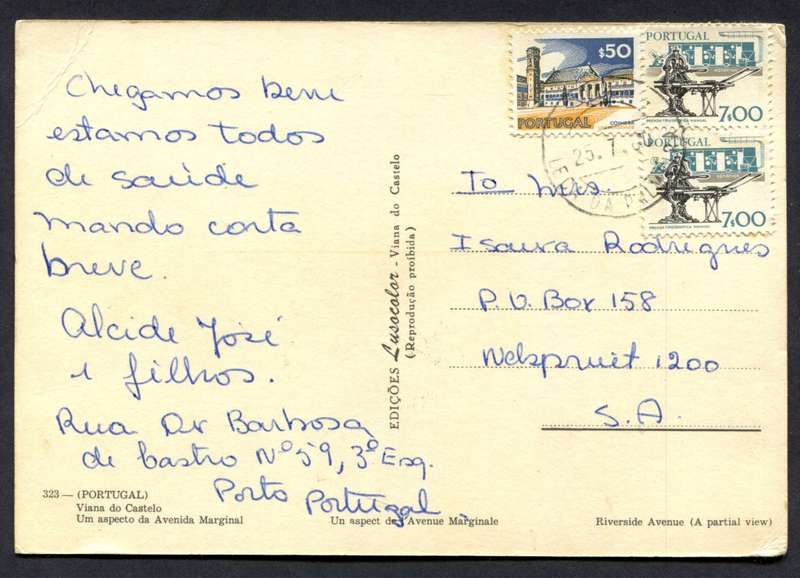 Chegamos bem
estamos todos
de saúde
mando carta
breve.
Alcide José
e filhos.
Rua Dr Barbosa
de Castro Nº 59, 3º Esq.
Porto Portugal
323 — (PORTUGAL)
Viana do Castelo
Um aspecto da Avenida Marginal
Un aspect de l'Avenue Marginale
Riverside Avenue (A partial view)
EDIÇÕES Lusocolor - Viana do Castelo
(Reprodução proíbida)
$50
COIMBRA
PORTUGAL
PORTUGAL
PRENSA TIPOGRÁFICA MANUAL
7$00
PORTUGAL
PRENSA TIPOGRÁFICA MANUAL
7$00
25. 7.
To Mrs.
Isaura Rodrigues
P.O. Box 158
Nelspruit 1200
S.A.